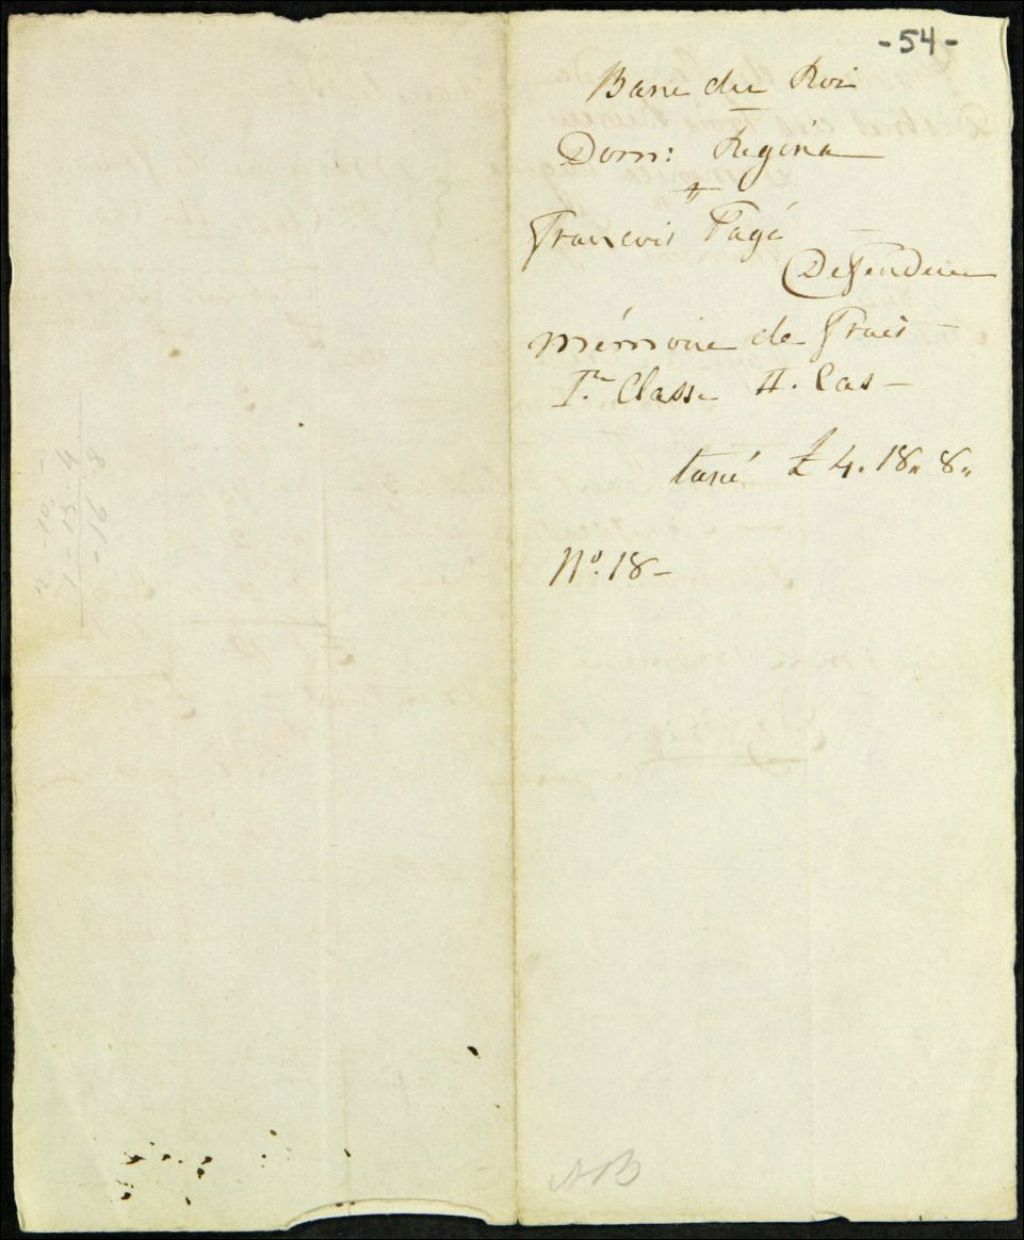 - 54 -
Banc du Roi
Dom: Regina
vs
François Pagé
Défendeur
Mémoire de Frais
1.re Classe II. Cas -
taxé £ 4. 18" 8"
No. 18 -
AB